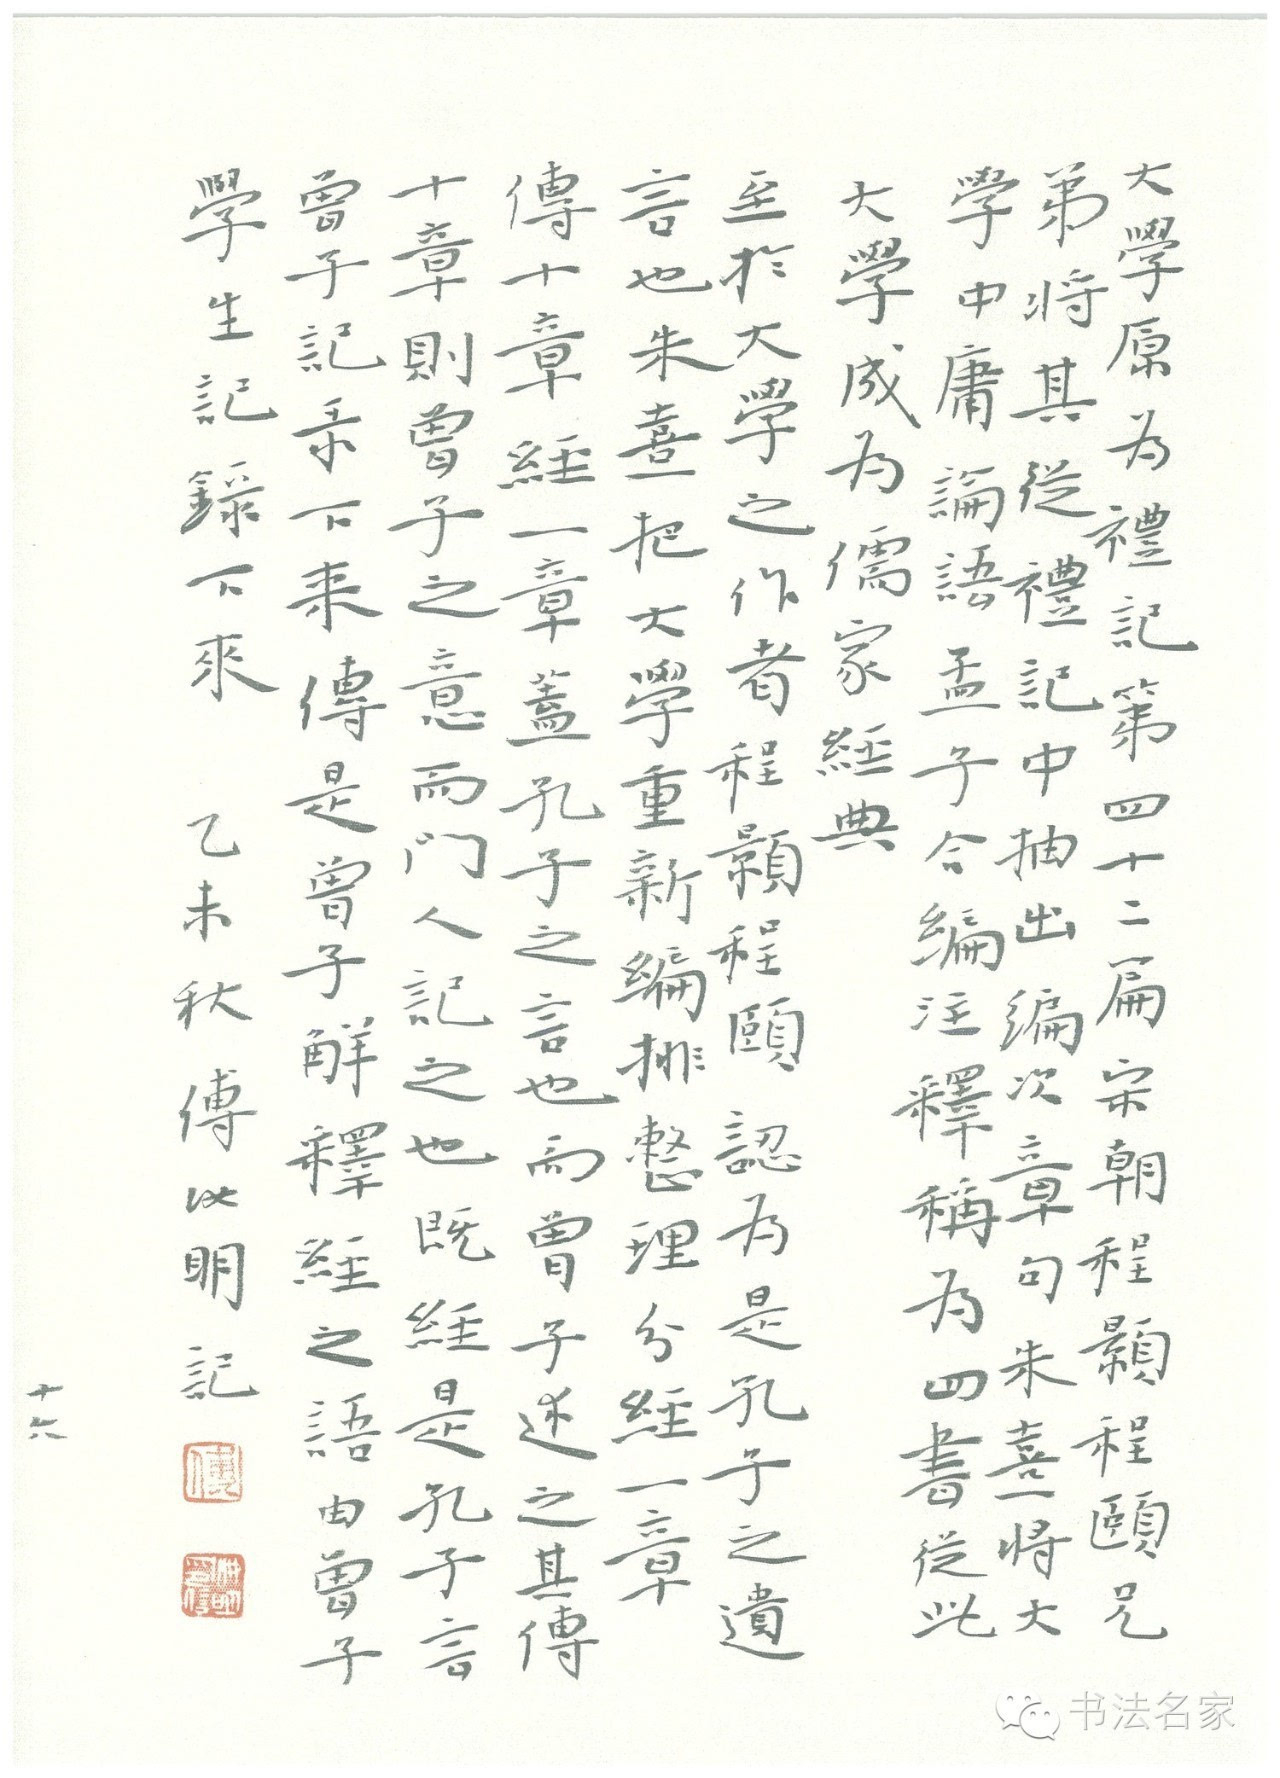 大學原为禮記第四十二扁宋朝程顥程頤兄
弟将其從禮記中抽出编次章句朱熹将大
學中庸論語孟子合編注釋稱为四書從此
大學成为儒家經典
至於大學之作者程顥程頤認为是孔子之遺
言也朱熹把大學重新編排整理分經一章
傳十章經一章蓋孔子之言也而曾子述之其傳
十章則曾子之意而門人記之也既經是孔子言
曾子記录下来傳是曾子解釋經之語由曾子
學生記錄下來 乙未秋 傅明記
傅
十六
书法名家